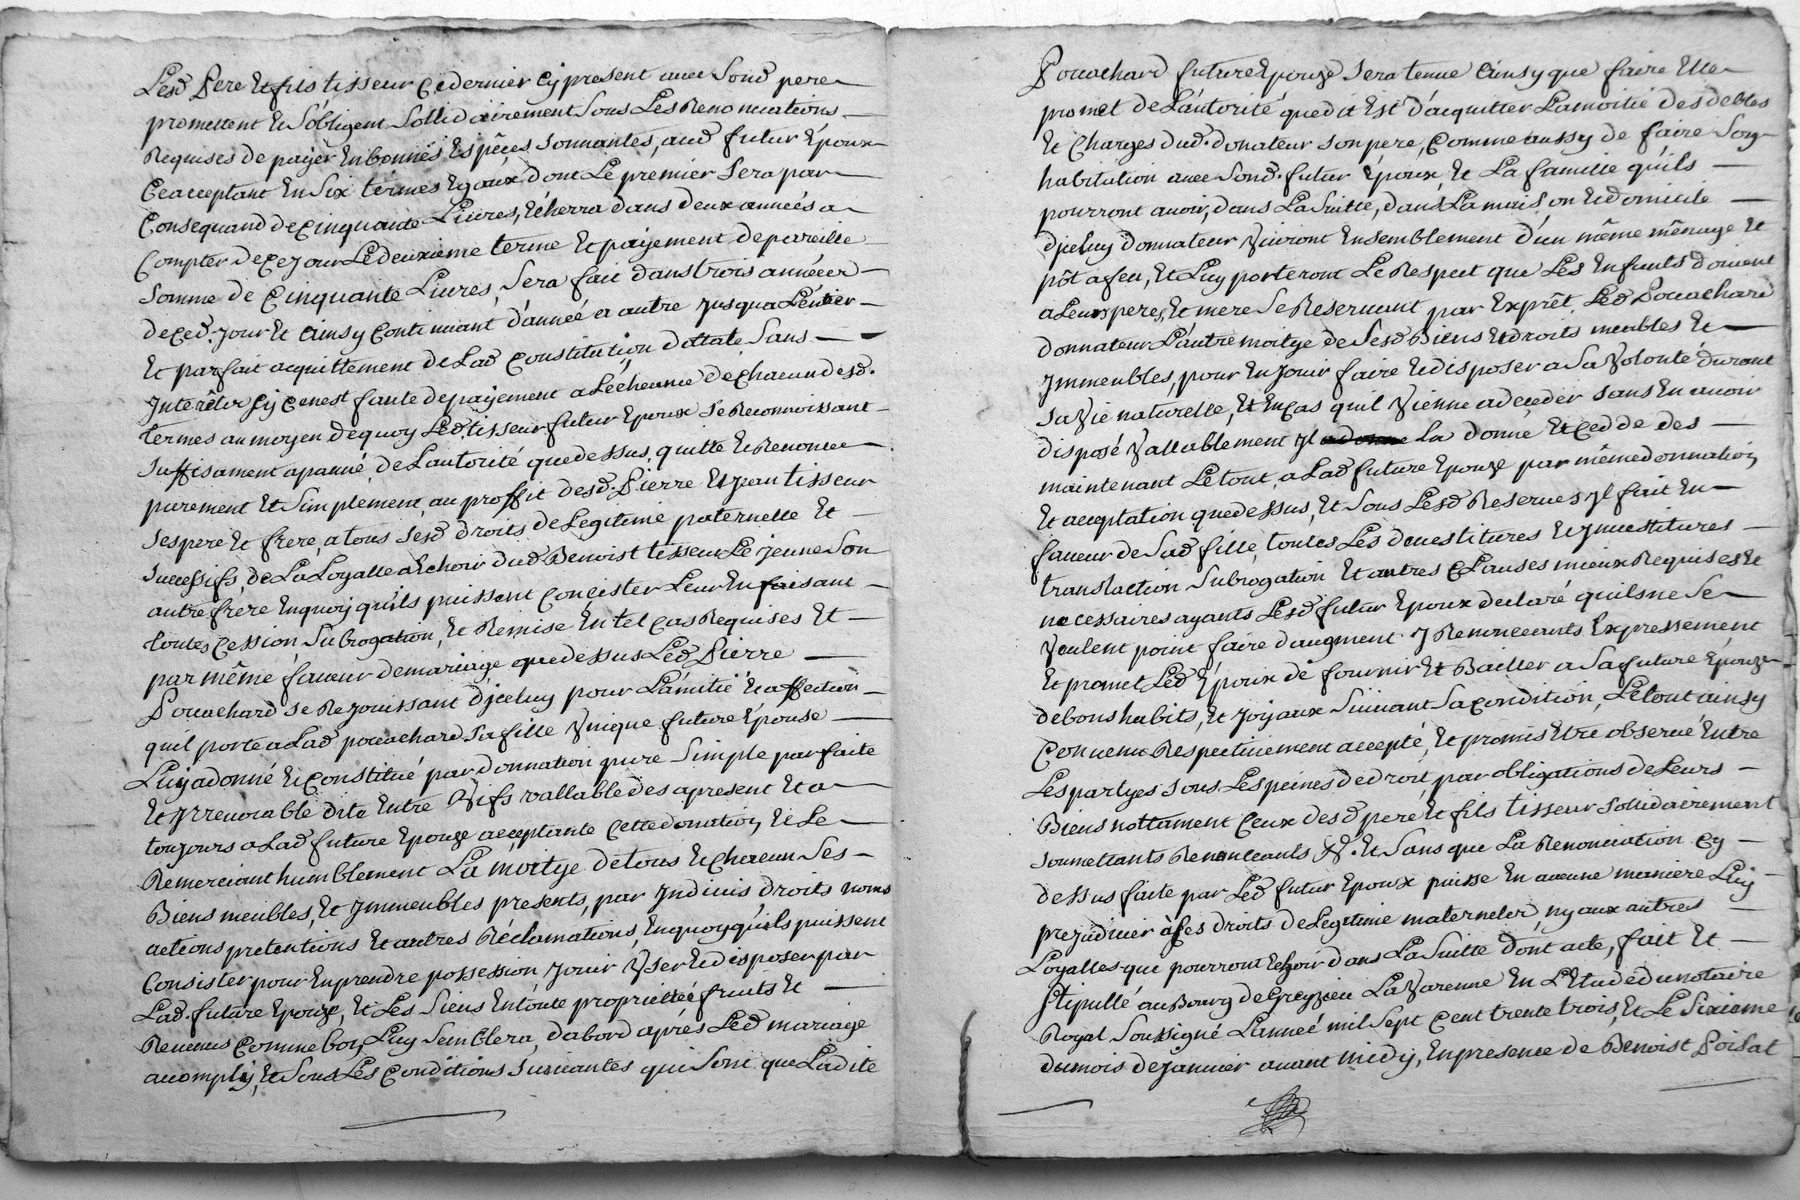 Lesd Pere Et fils tisseur Ce dernier Cy present avec Sond pere
promettent Et S'obligent Sollidairement Sous Les Renonciations
Requises de payer En bonnes Espèces sonnantes, aud futur Epoux
Ce acceptant En Six termes Egaux dont Le premier Sera par
Consequand de Cinquante Livres, Echerra dans deux années a
Compter de Ce jour Le deuxieme terme Et payement de pareille
Somme de Cinquante Livres, Sera fait dans trois années
de Ced. Jour Et Ainsy Continuant d'année En autre Jusqua L'entier
Et parfait acquittement de Lad Constitution dottale Sans
Interêts Sy Ce nest faute de payement a L'echeance de Chacun desd.
termes au moyen de quoy Led, tisseur futur Epoux Se Reconnoissant
Suffisament apanné, de L'autorité que dessus, quitte Et Renonce
purement Et Simplement au proffit desd. Pierre Et Jean tisseur
Ses pere Et frere, a tous Sesd droits de Legitime paternelle Et
Successifs, de La Loyalle a Echoir dud Benoist tisseur Le jeune Son
autre frère En quoy qu'ils puissent Concister Leur En faisant
toutes Cession Subrogation, Et Remise En tel Cas Requises Et
par même faveur de mariage que dessus Led Pierre
Pouachard Se Rejouissant D'jceluy pour L'amitié Et affection
quil porte a Lad pouachard Sa fille Unique future Epouse
Luy a donné Et Constitué par donnation pure Simple parfaite
Et Jrrevocable dite Entre Vifs vallable des apresent Et a
toujours a Lad future Epouze acceptante Cette donation Et Le
Remerciant humblement La moitye de tous Et Chacun Ses
Biens meubles, Et Jmmeubles presents, par Jndivis droits noms
actions pretentions Et autres Réclamations, En quoy qu'ils puissent
Consister pour En prendre possession Jouir User Et disposer par
Lad. future Epouze, Et Les Siens En toute proprietté fruits Et
Revenus Comme bon Luy Semblera, d'abord après Led mariage
accomply, Et Sous Les Conditions Suivantes qui Sont que Ladite
Pouachard future Epouze Sera tenue Ainsy que faire Elle
promet de L'autorité que dit Est d'acquitter La moitié des debtes
Et Charges dud. donateur son pere, Comme aussy de faire Son
habitation avec Sond. futur Epoux, Et La famille qu'ils
pourront avoir, dans La Suitte, dans La maison Et domicile
d'jceluy donnateur Vivront Ensemblement d'un même ménage Et
pôt a feu, Et Luy porteront Le Respect que Les Enfants doivent
a Leurs pere, Et mere Se Reservant par Exprêt Led Pouachard
donnateur L'autre moitye de Sesd Biens Et droits meubles Et
Jmmeubles, pour En Jouir faire Et disposer a Sa Volonté durant
Sa Vie naturelle, Et En Cas quil Vienne a deceder Sans En avoir
disposé Vallablement Jl a donné La donné Et Cedde des
maintenant Le tout, a Lad future Epouze par même donnation
Et acceptation que dessus, Et Sous Lesd Reserves Jl fait En
faveur de Sad fille, toutes Les devestitures Et Jnvestitures
translaction Subrogation Et autres Clauses mieux Requises Et
necessaires ayants Lesd futur Epoux declaré quils ne Se
Veulent point faire daugment, y Renonceants Expressement
Et promet Led Epoux de fournir Et Bailler a Sa future Epouze
de bons habits, Et Joyaux Suivant Sa Condition, Le tout ainsy
Convenu Respectivement accepté, Et promis Etre observé Entre
Les partyes sous Les peines de droit, par obligations de Leurs
Biens nottament Ceux desd pere Et fils tisseur Sollidairement
Soumettants Renonceants &. Et Sans que La Renonciation Cy
dessus faite par Led futur Epoux puisse En aucune maniere Luy
prejudicier à Ses droits de Legitime maternelle, ny aux autres
Loyalles que pourront Echoir dans La Suitte dont acte, fait Et
Stipullé au Bourg de Greyzieu La Varenne En L'Etude du notaire
Royal Soussigné L'anneé mil Sept Cent trente trois, Et Le Sixieme
du mois de Janvier avant midy, En presence de Benoist Poisat